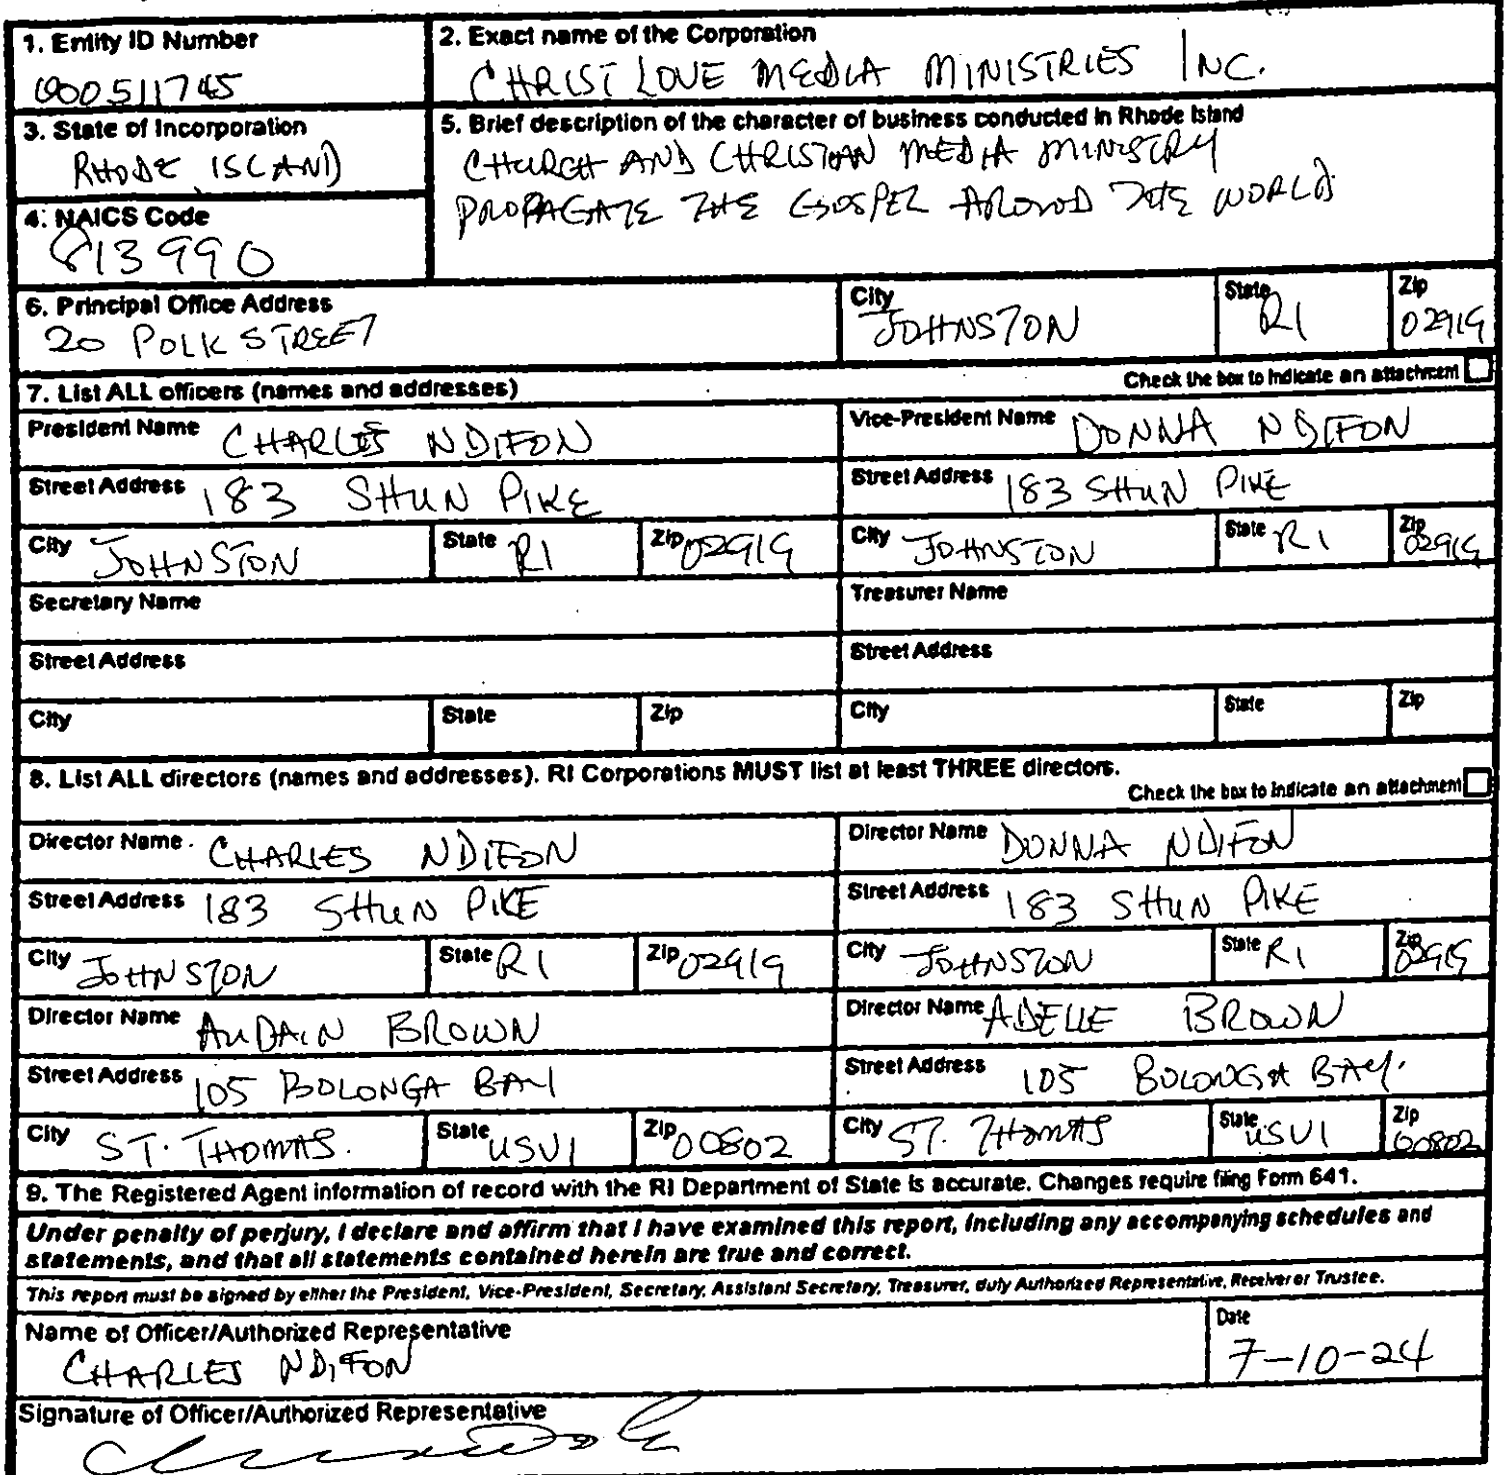 1. Entity ID Number
000511745
2. Exact name of the Corporation
CHRIST LOVE MEDIA MINISTRIES INC.
3. State of Incorporation
RHODE ISLAND
4. NAICS Code
813990
5. Brief description of the character of business conducted in Rhode Island
CHURCH AND CHRISTIAN MEDIA MINISTRY
PROPAGATE THE GOSPEL AROUND THE WORLD
6. Principal Office Address
20 POLK STREET
City JOHNSTON
State RI
Zip 02919
7. List ALL officers (names and addresses)
Check the box to indicate an attachment
President Name CHARLES NDIFON
Vice-President Name DONNA NDIFON
Street Address 183 SHUN PIKE
Street Address 183 SHUN PIKE
City JOHNSTON State RI Zip 02919
City JOHNSTON State RI Zip 02919
Secretary Name
Treasurer Name
Street Address
Street Address
City State Zip
City State Zip
8. List ALL directors (names and addresses). RI Corporations MUST list at least THREE directors.
Check the box to indicate an attachment
Director Name CHARLES NDIFON
Director Name DONNA NDIFON
Street Address 183 SHUN PIKE
Street Address 183 SHUN PIKE
City JOHNSTON State RI Zip 02919
City JOHNSTON State RI Zip 02919
Director Name AUDAIN BROWN
Director Name ADELLE BROWN
Street Address 105 BOLONGA BAY
Street Address 105 BOLONGA BAY.
City ST. THOMAS. State USVI Zip 00802
City ST. THOMAS State USVI Zip 00802
9. The Registered Agent information of record with the RI Department of State is accurate. Changes require filing Form 641.
Under penalty of perjury, I declare and affirm that I have examined this report, including any accompanying schedules and
statements, and that all statements contained herein are true and correct.
This report must be signed by either the President, Vice-President, Secretary, Assistant Secretary, Treasurer, duly Authorized Representative, Receiver or Trustee.
Name of Officer/Authorized Representative
CHARLES NDIFON
Date
7-10-24
Signature of Officer/Authorized Representative